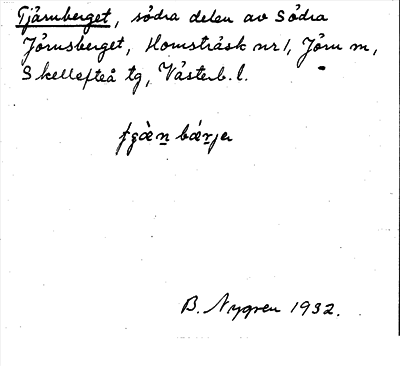 Tjärnberget, södra delen av Södra
Jörnsberget, Homsträsk nr 1, Jörn m,
Skellefteå tg, Västerb. l.
bǽrje
B. Nygren 1932.